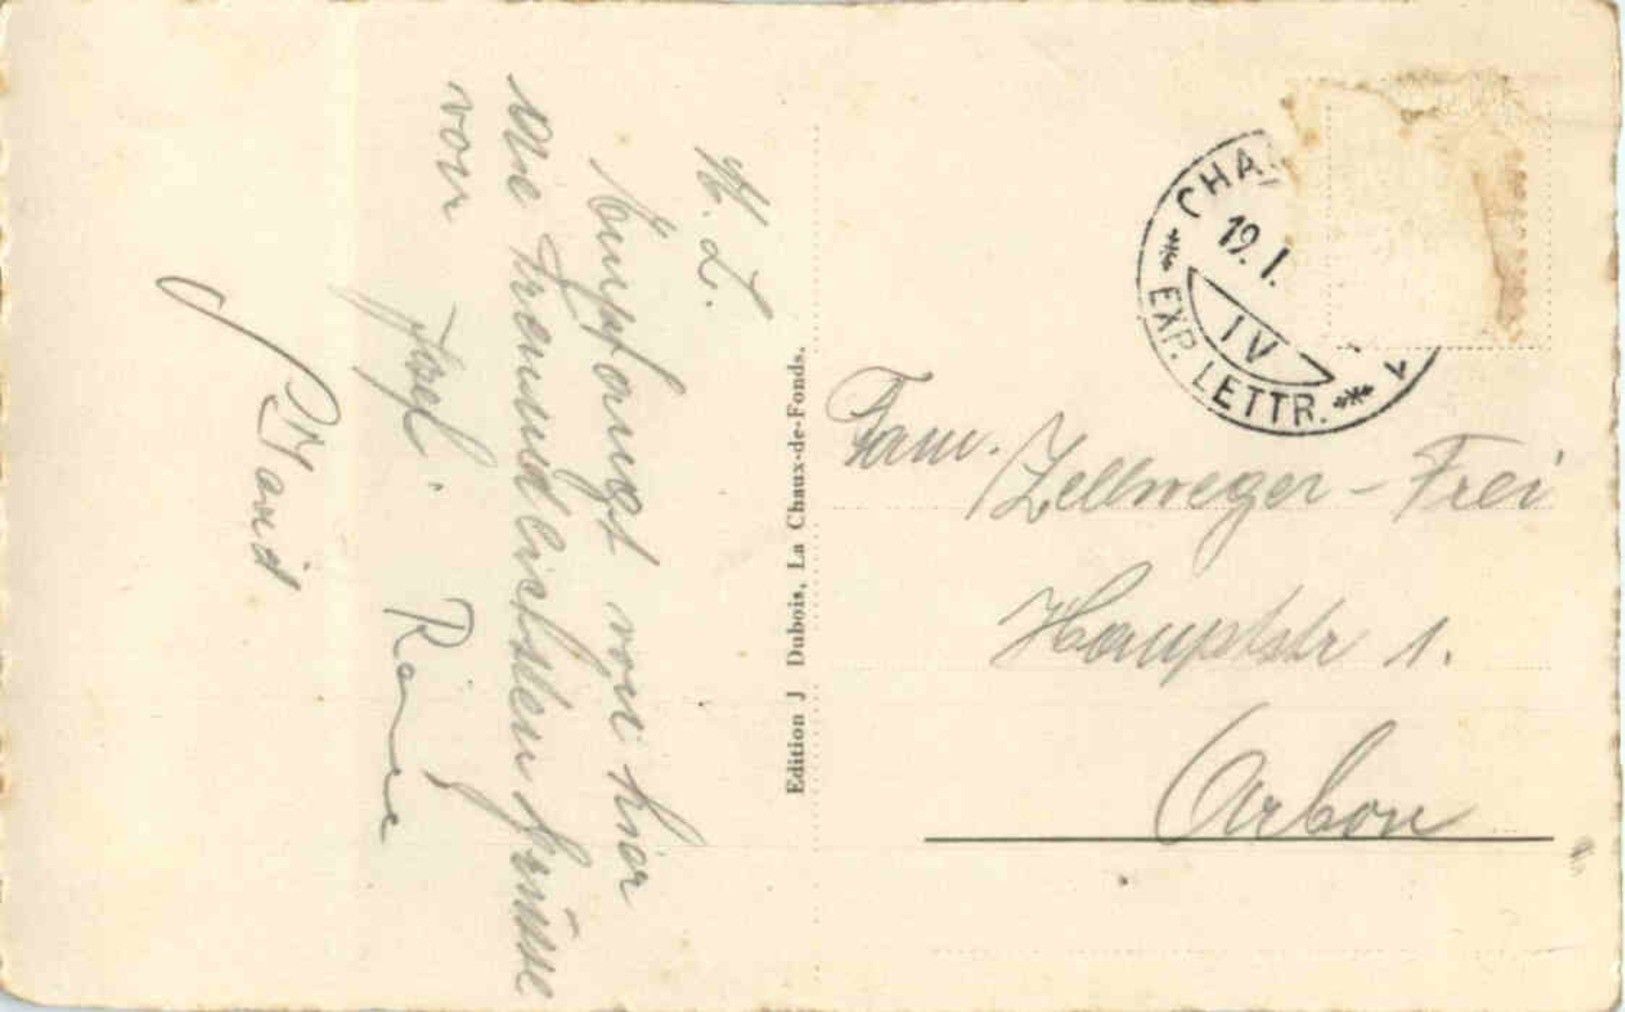 M. L.
Empfangt von hier
die freundlichsten Grüsse
von Josef. René
David
Edition J Dubois, La Chaux-de-Fonds.
CHA
19. I.
IV
EXP. LETTR.
Fam.
Zellweger-Frei
Hauptstr 1.
Arbon